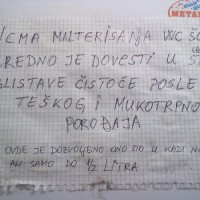 METAL
MALTERISANJA WC ŠO
REDNO JE DOVESTI U
BLISTAVE ČISTOĆE POSLE
TEŠKOG I MUKOTRPNO
POROĐAJA
OVDE JE DOZVOLJENO ONO ŠTO U KADI N
ALI SAMO DO 1/2 LITRA